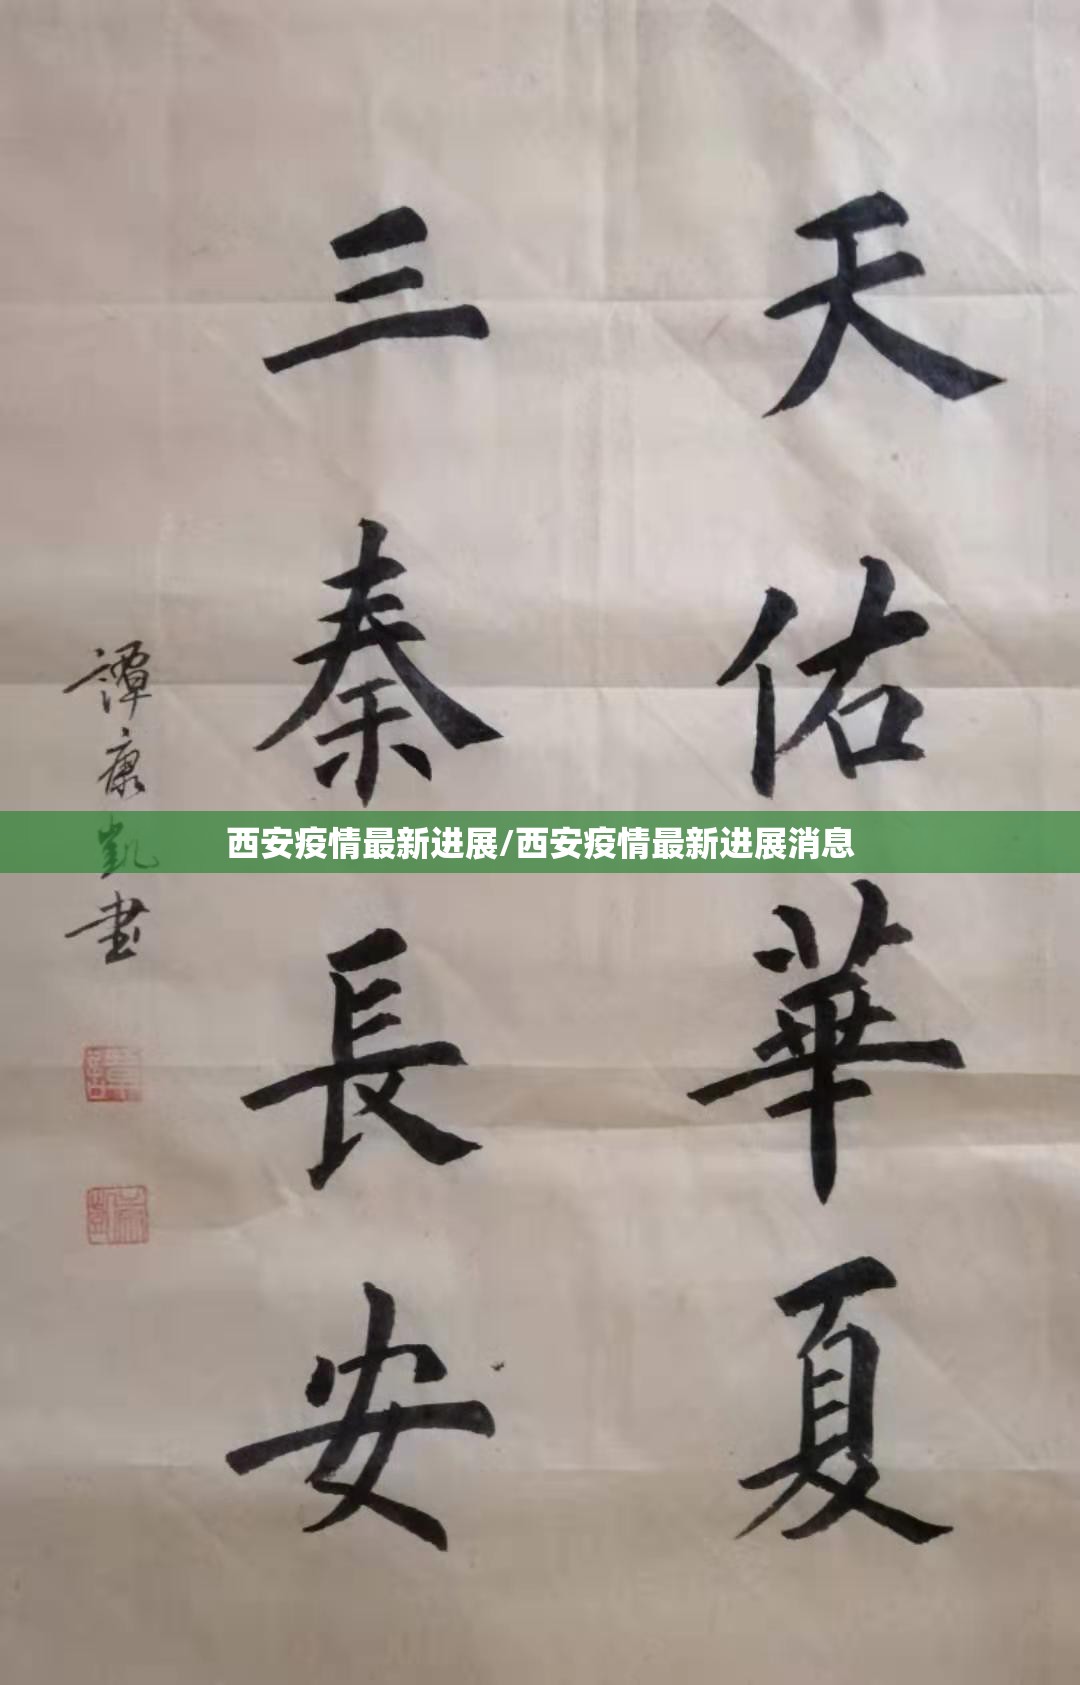 天佑華夏
三秦長安
譚康凱書
西安疫情最新进展/西安疫情最新进展消息